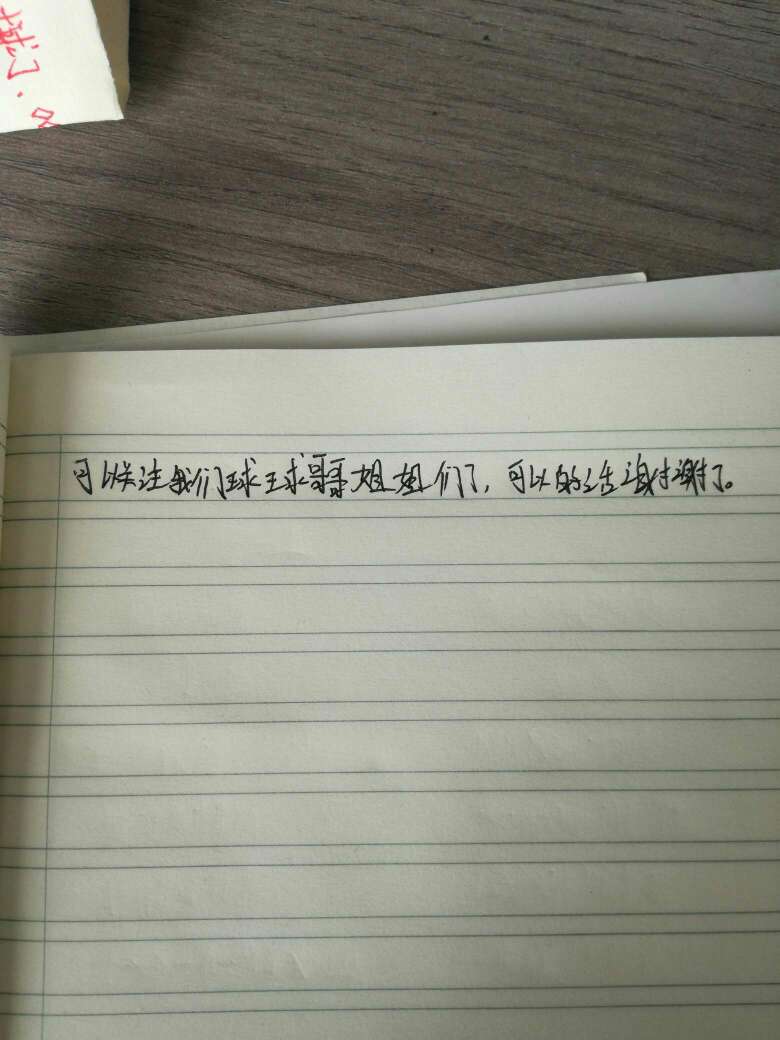 可以关注我们球球哥哥姐姐们了，可以的话谢谢了。